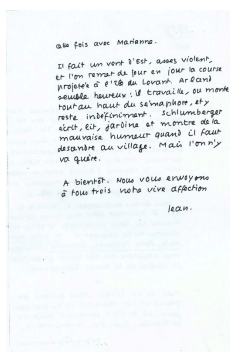 que fois avec Marianne.
Il fait un vent d'Est, assez violent,
et l'on remet de jour en jour la course
projetée à l'île du Levant. Arland
semble heureux: il travaille, ou monte
tout au haut du sémaphore, et y
reste indéfiniment. Schlumberger
écrit, lit, jardine et montre de la
mauvaise humeur quand il faut
descendre au village. Mais l'on n'y
va guère.
A bientôt. Nous vous envoyons
à tous trois notre vive affection
Jean.